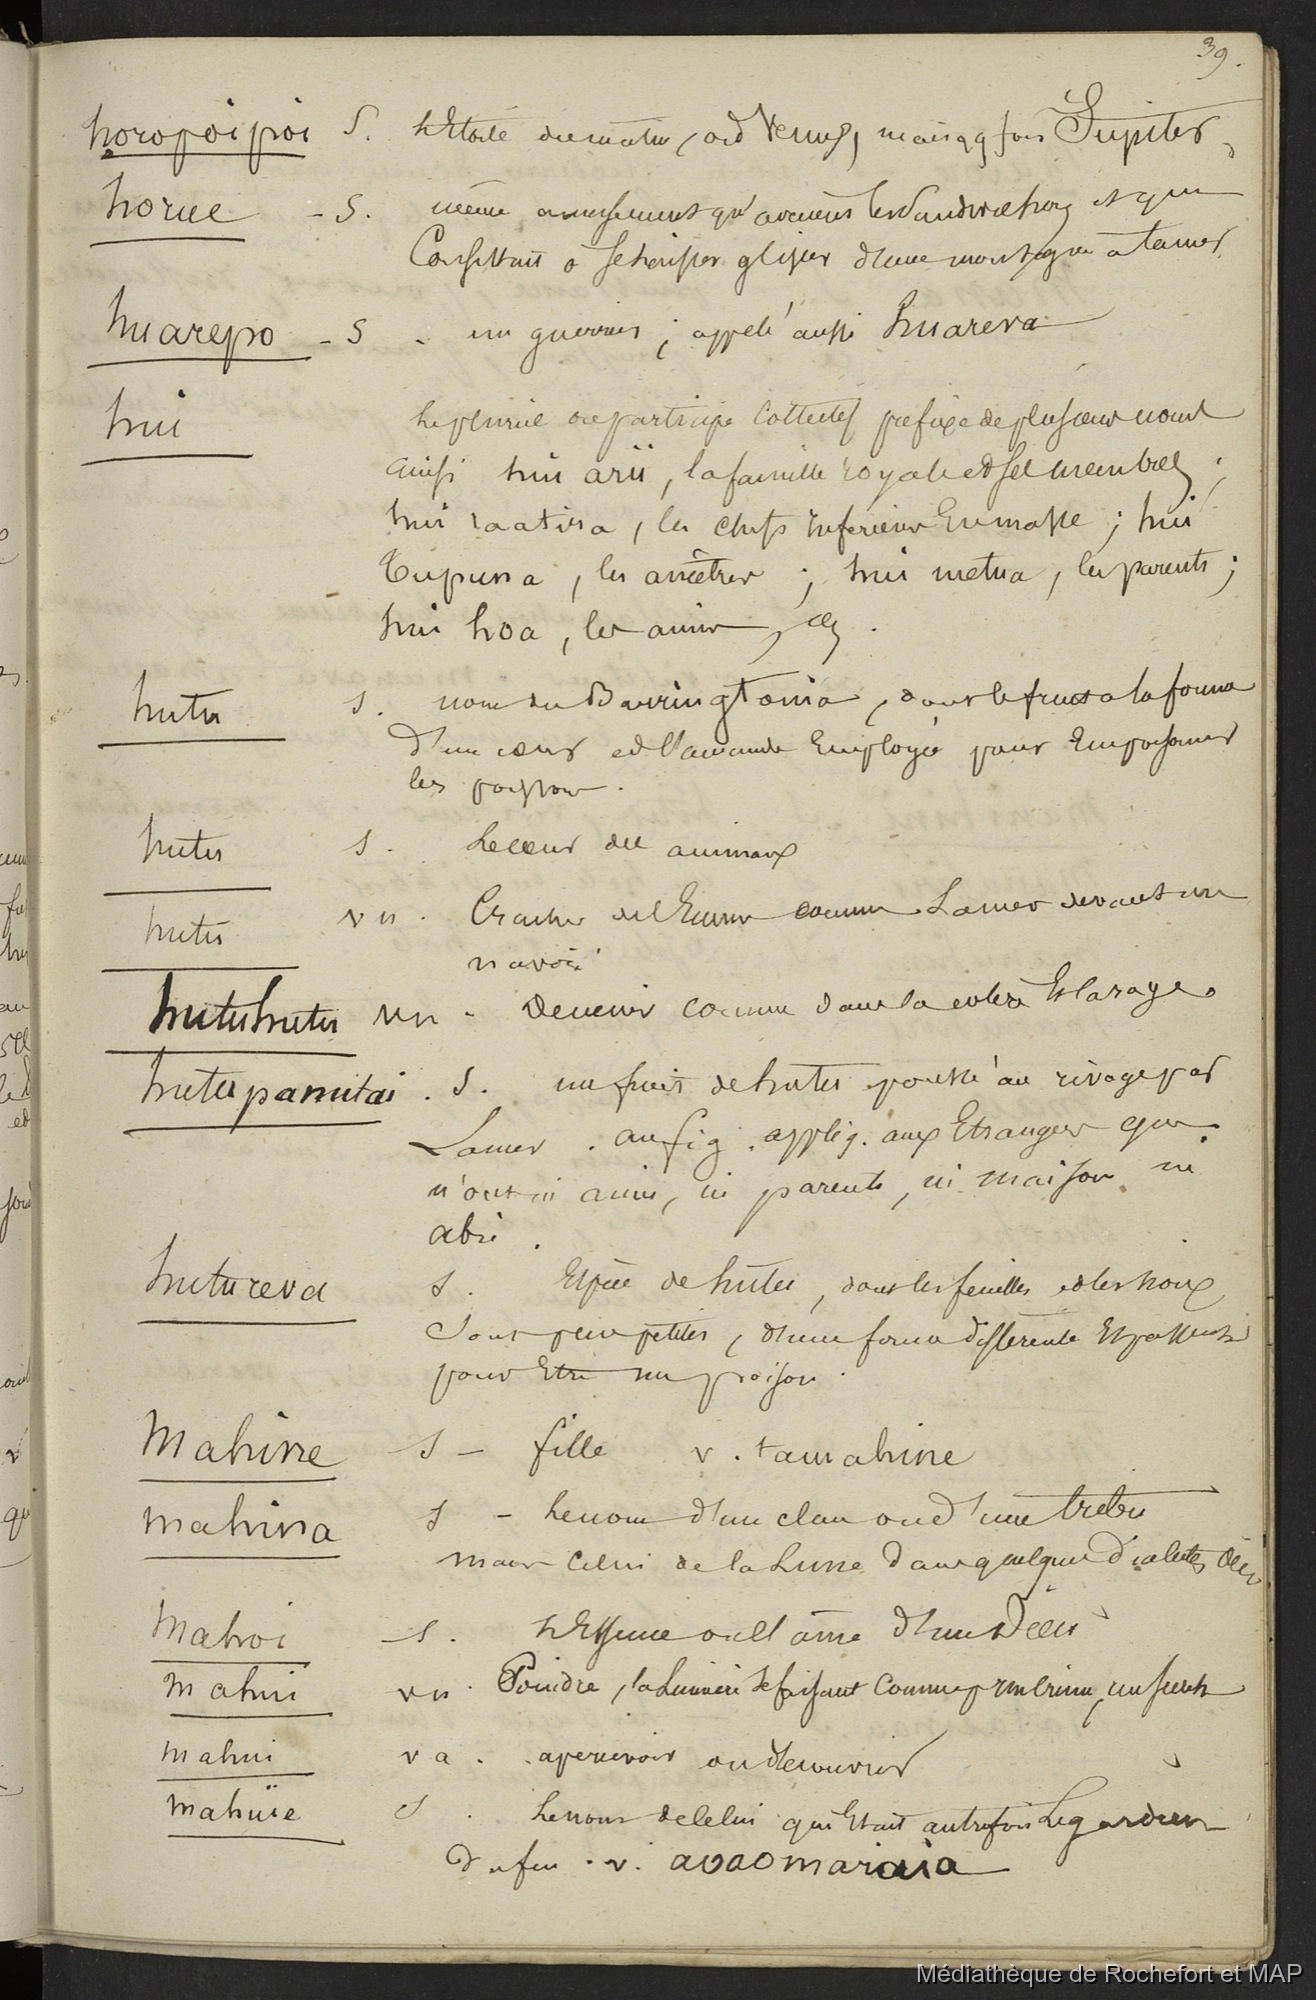 39.
horopoipoi S. L'Etoile du matin, ord Venus, mais qq fois Jupiter,
horue - S. même amusement qu'avaient les Sandwichois et qui
Consistait à se laisser glisser d'une montagne
huarepo - S. un guerrier ; appelé aussi huareva
hui le pluriel ou participe Collectif préfixe de plusieurs noms
ainsi hui arii, la famille royale et ses membres ;
hui raatira, les chefs inferieurs En masse ; hui
Tupuna, les ancêtres ; hui metua, les parents ;
hui hoa, les amis,
hutu S. nom du Barringtonia, dont le fruit a la forme
d'un coeur et l'amande Employée pour Empoisonner
les poissons.
hutu S. Le coeur des animaux
hutu vn. Cracher de l'Ecume comme La mer devant un
navire
hutuhutu vn. Devenir comme dans la colère Et la rage.
hutupainutai. S. un fruit de hutu poussé au rivage par
La mer. au fig. appliq. aux Etrangers qui
n'ont ni amis, ni parents, ni maison ni
abri.
hutureva S. Espèce de hutu, dont les feuilles et les noix
Sont plus petites, d'une forme differente Et passent
pour Etre un poison.
Mahine S - fille v. tamahine
mahina S - Le nom d'un clan ou d'une tribu
mais Celui de la Lune dans quelques Dialectes
Mahoi S. L'Essence ou l'âme d'un Dieu
mahui vn. Poindre, la Lumière se faisant Comme
mahui va. apercevoir ou découvrir
mahuie S. Le nom de celui qui Etait autrefois Le gardien
du feu. v. aoaomaraia
Médiathèque de Rochefort et MAP